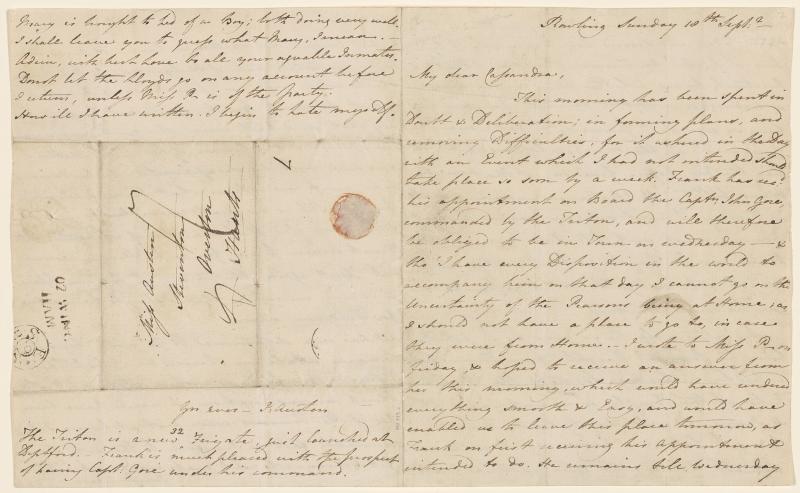 Rowling Sunday 18th Septr
My dear Cassandra,
This morning has been spent in
Doubt & Deliberation; in forming plans, and
removing Difficulties, for it ushered in the Day
with an Event which I had not intended should
take place so soon by a week. Frank has recd
his appointment on Board the Captn John Gore,
commanded by the Triton, and will therefore
be obliged to be in Town on wednesday — &
tho' I have every Disposition in the world to
accompany him on that day, I cannot go on the
Uncertainty of the Pearsons being at Home; as
I should not have a place to go to, in case
they were from Home. I wrote to Miss P. on
Friday, & hoped to receive an answer from
her this morning, which would have rendered
everything smooth & Easy, and would have
enabled us to leave this place tomorrow, as
Frank on first receiving his Appointment
intended to do. He remains till Wednesday
Mary is brought to bed of a Boy; both doing very well.
I shall leave you to guess what Mary, I mean.—
Adieu, with best Love to all your agreable Inmates.
Donot let the Lloyds go on any account before
I return, unless Miss P. is of the party.
How ill I have written. I begin to hate myself.
7
Miss Austen
Steventon
Overton
Hants
Yrs ever— J. Austen
The Triton is a new 32 Frigate, just launched at
Deptford.— Frank is much pleased with the prospect
of having Captn Gore under his command.